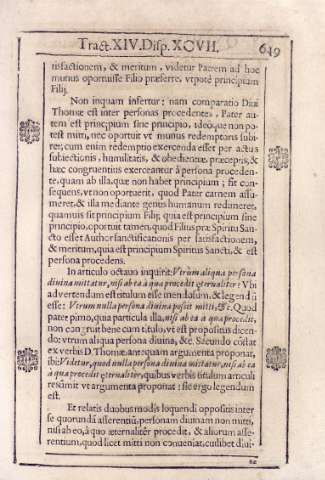 Tract. XIV. Disp. XCVII. 649
tisfactionem, & meritum, videtur Patrem ad hoc
munus oportuisse Filio præferre, vtpotè principium
Filij.
Non inquam infertur: nam comparatio Diui
Thomæ est inter personas procedentes, Pater au-
tem est principium sine principio, ideoque non po-
test mitti, nec oportuit vt munus redemptoris subi-
ret; cum enim redemptio exercenda esset per actus
subiectionis, humilitatis, & obedientiæ præcepti, &
hæc congruentius exerceantur à persona proceden-
te, quam ab illa, quæ non habet principium; fit con-
sequens, vt non oportuerit, quod Pater carnem assu-
meret, & illa mediante genus humanum redimeret,
quamuis sit principium Filij, quia est principium sine
principio, oportuit tamen, quod Filius præ Spiritu San-
cto esset Author sanctificationis per satisfactionem,
& meritum, quia est principium Spiritus Sancti, & est
persona procedens.
In articulo octauo inquirit: Vtrum aliqua persona
diuina mittatur, nisi ab ea à qua procedit æternaliter: Vbi
aduertendum est titulum esse mendosum, & legendū
esse: Vtrum nulla persona diuina possit mitti, &c. Quod
patet pimo, quia particula illa, nisi ab ea à qua procedit,
non congruit bene cum titulo, vt est propositus dicen-
do: vtrum aliqua persona diuina, &c. Secundo cōstat
ex verbis D. Thomæ, antequam argumenta proponat,
ibi: Videtur, quod nulla persona diuina mittatur, nisi ab ea
à qua procedit æternaliter, quibus verbis titulum articuli
resūmit vt argumenta proponat: sic ergo legendum
est.
Et relatis duobus modis loquendi oppositis inter
se quorundā asserentiū, personam diuinam non mitti,
nisi ab eo, à quo æternalitér procedit, & aliorum asse-
rentium, quod licet mitti non conueniat, cuilibet diui-